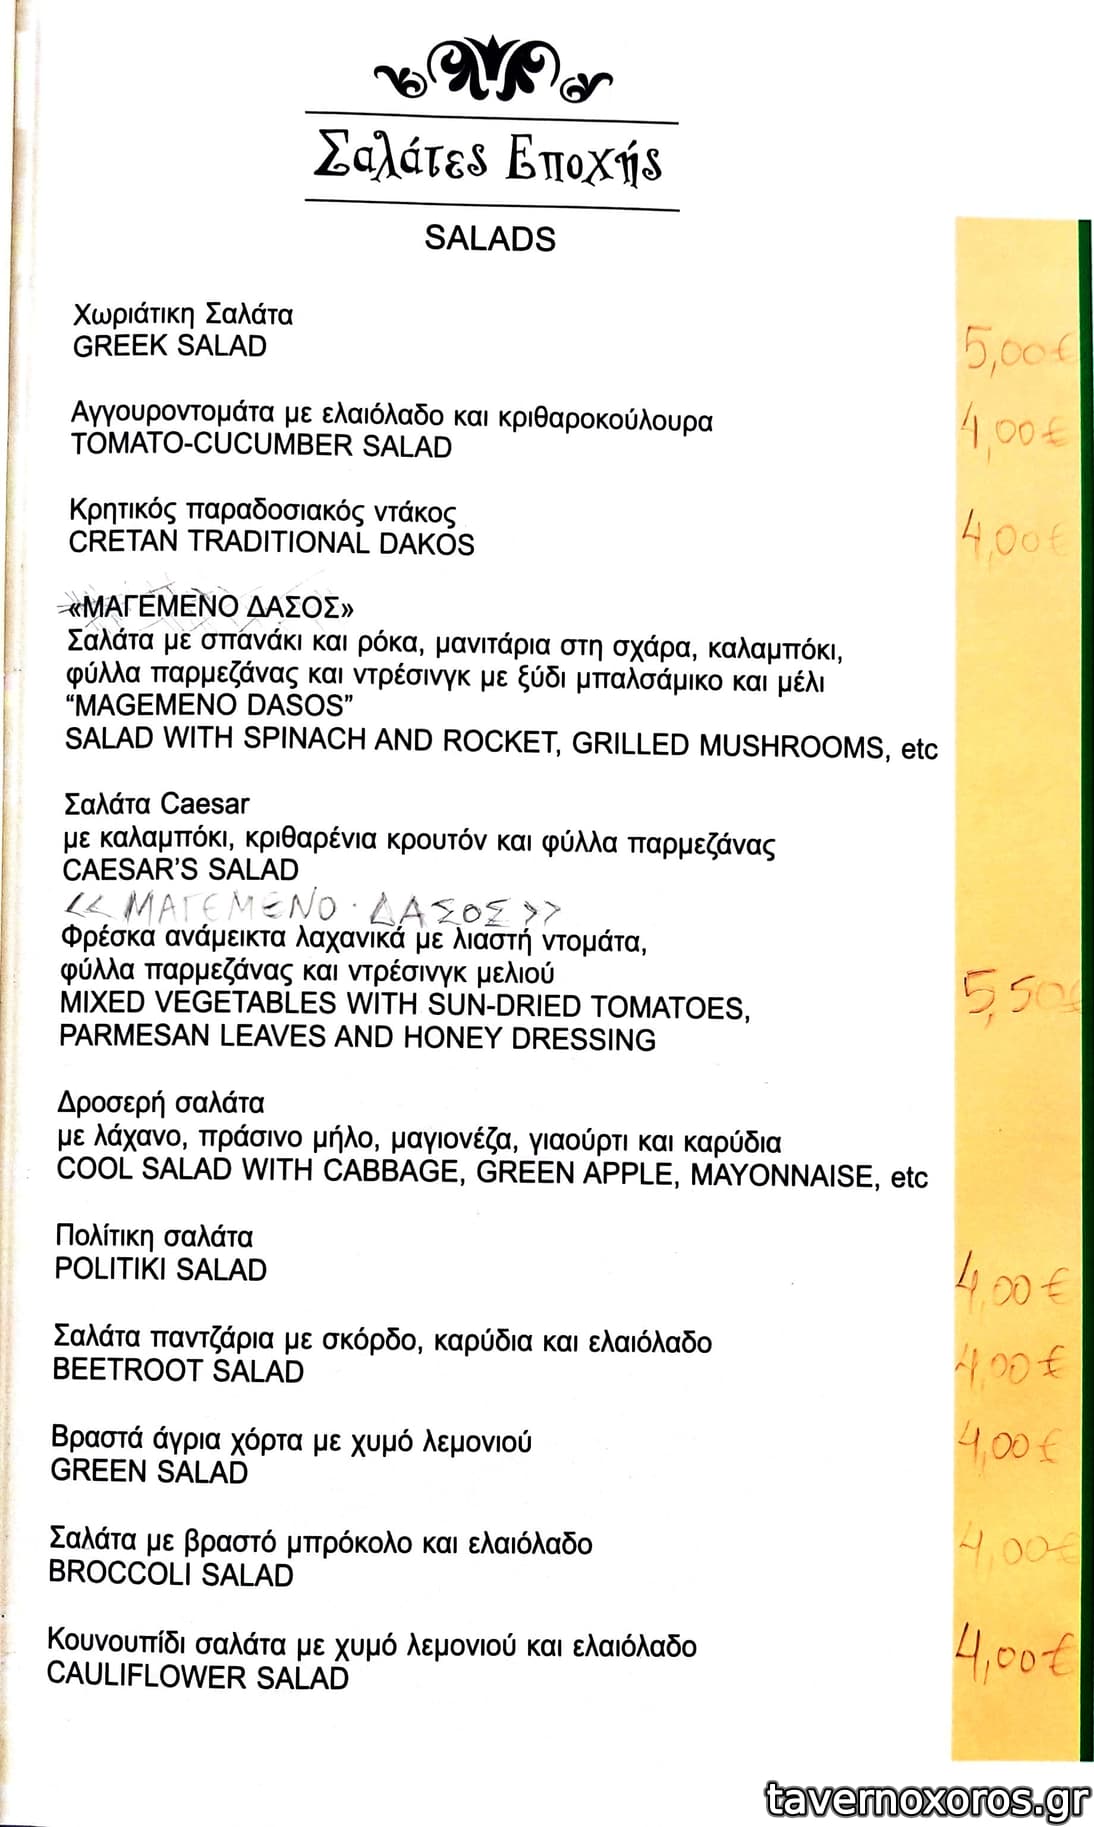 Σαλάτες Εποχής
SALADS
Χωριάτικη Σαλάτα
GREEK SALAD
5,00€
Αγγουροντομάτα με ελαιόλαδο και κριθαροκούλουρα
TOMATO-CUCUMBER SALAD
4,00€
Κρητικός παραδοσιακός ντάκος
CRETAN TRADITIONAL DAKOS
4,00€
«ΜΑΓΕΜΕΝΟ ΔΑΣΟΣ»
Σαλάτα με σπανάκι και ρόκα, μανιτάρια στη σχάρα, καλαμπόκι,
φύλλα παρμεζάνας και ντρέσινγκ με ξύδι μπαλσάμικο και μέλι
“MAGEMENO DASOS”
SALAD WITH SPINACH AND ROCKET, GRILLED MUSHROOMS, etc
Σαλάτα Caesar
με καλαμπόκι, κριθαρένια κρουτόν και φύλλα παρμεζάνας
CAESAR’S SALAD
<< ΜΑΓΕΜΕΝΟ · ΔΑΣΟΣ >>
Φρέσκα ανάμεικτα λαχανικά με λιαστή ντομάτα,
φύλλα παρμεζάνας και ντρέσινγκ μελιού
5,50€
MIXED VEGETABLES WITH SUN-DRIED TOMATOES,
PARMESAN LEAVES AND HONEY DRESSING
Δροσερή σαλάτα
με λάχανο, πράσινο μήλο, μαγιονέζα, γιαούρτι και καρύδια
COOL SALAD WITH CABBAGE, GREEN APPLE, MAYONNAISE, etc
Πολίτικη σαλάτα
POLITIKI SALAD
4,00€
Σαλάτα παντζάρια με σκόρδο, καρύδια και ελαιόλαδο
BEETROOT SALAD
4,00€
Βραστά άγρια χόρτα με χυμό λεμονιού
GREEN SALAD
4,00€
Σαλάτα με βραστό μπρόκολο και ελαιόλαδο
BROCCOLI SALAD
4,00€
Κουνουπίδι σαλάτα με χυμό λεμονιού και ελαιόλαδο
CAULIFLOWER SALAD
4,00€
tavernoxoros.gr